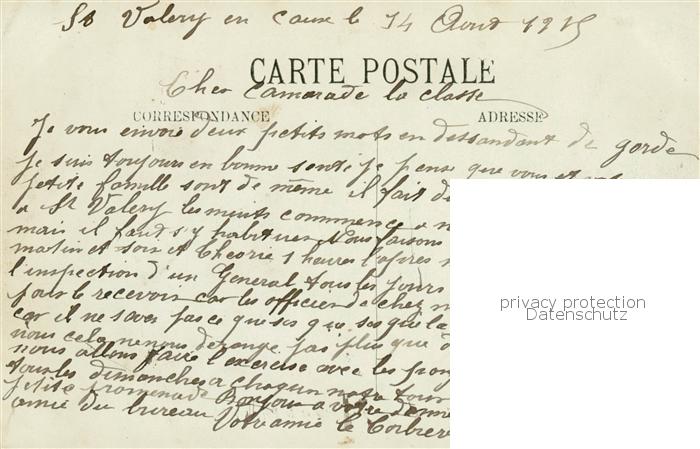 St Valery en Caux le 14 Aout 1915
CARTE POSTALE
Cher Camarade la classe
CORRESPONDANCE ADRESSE
Je vous envoie deux petits mots en dessendant de gorde
je suis toujours en bonne sente je pense que vous et
petite famille sont de même il fait
a St Valery les nuits commence a
mais il faut s'y habituer Nous faisons
matin et soir et theorie 1 heures l'apres
l'inspection d'un General tous les jours
pour le recevoir car les officier de chez
car il ne save pas ce que ses que
nous cela ne nous derange pas plus que
nous allons faire l'exercise avec les
tous les dimanches a chaqun notre tour
petite promenade Bonjour a votre
amie du bureau Votre amie le
privacy protection
Datenschutz